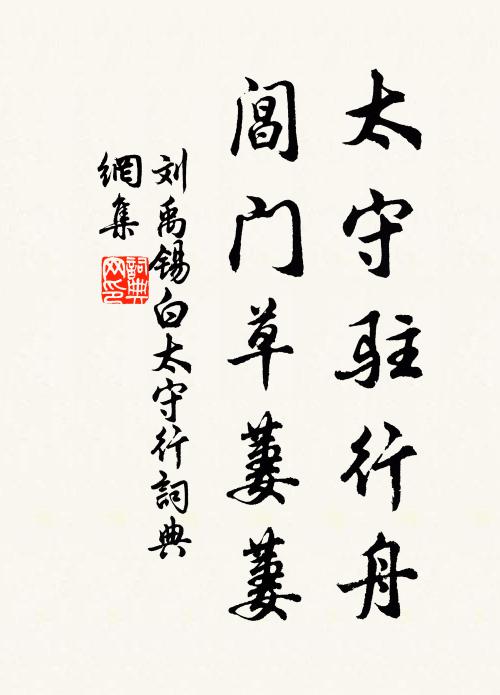 太守驻行舟
阊门草萋萋
刘禹锡白太守行詞典
網集
詞典
网印